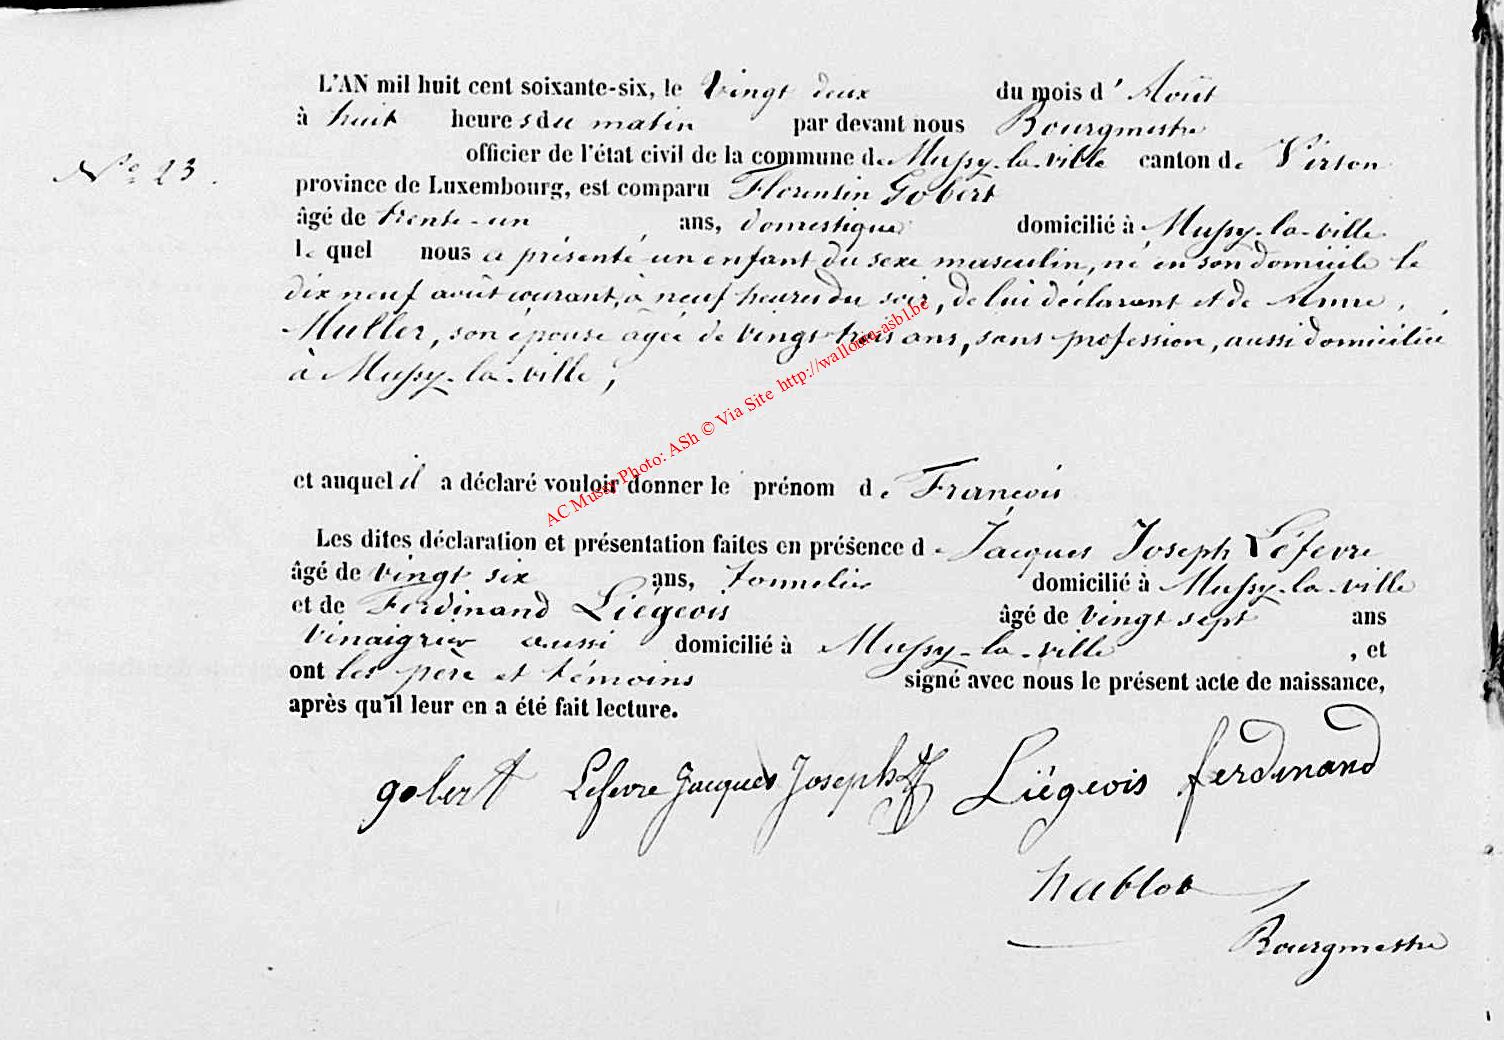 L'AN mil huit cent soixante-six, le Vingt deux du mois d' Août
à huit heures du matin par devant nous Bourgmestre
officier de l'état civil de la commune de Mussy-la-ville canton de Virton
N° 23.
province de Luxembourg, est comparu Florentin Gobert
âgé de trente-un ans, domestique domicilié à Mussy-la-ville
lequel nous a présenté un enfant du sexe masculin, né en son domicile le
dix neuf août courant, à neuf heures du soir, de lui déclarant et de Anne
Muller, son épouse âgée de vingt-trois ans, sans profession, aussi domiciliée
à Mussy-la-ville,
et auquel il a déclaré vouloir donner le prénom de François
Les dites déclaration et présentation faites en présence de Jacques Joseph Léfevre
âgé de vingt six ans, tonnelier domicilié à Mussy-la-ville
et de Ferdinand Liégeois âgé de vingt sept ans
vinaigrier aussi domicilié à Mussy-la-ville, et
ont les père et témoins signé avec nous le présent acte de naissance,
après qu'il leur en a été fait lecture.
gobert Lefevre Jacques Joseph Liégeois ferdinand
Nablot
Bourgmestre
AC Mussy Photo: ASh © Via Site http://wallonia-asbl.be